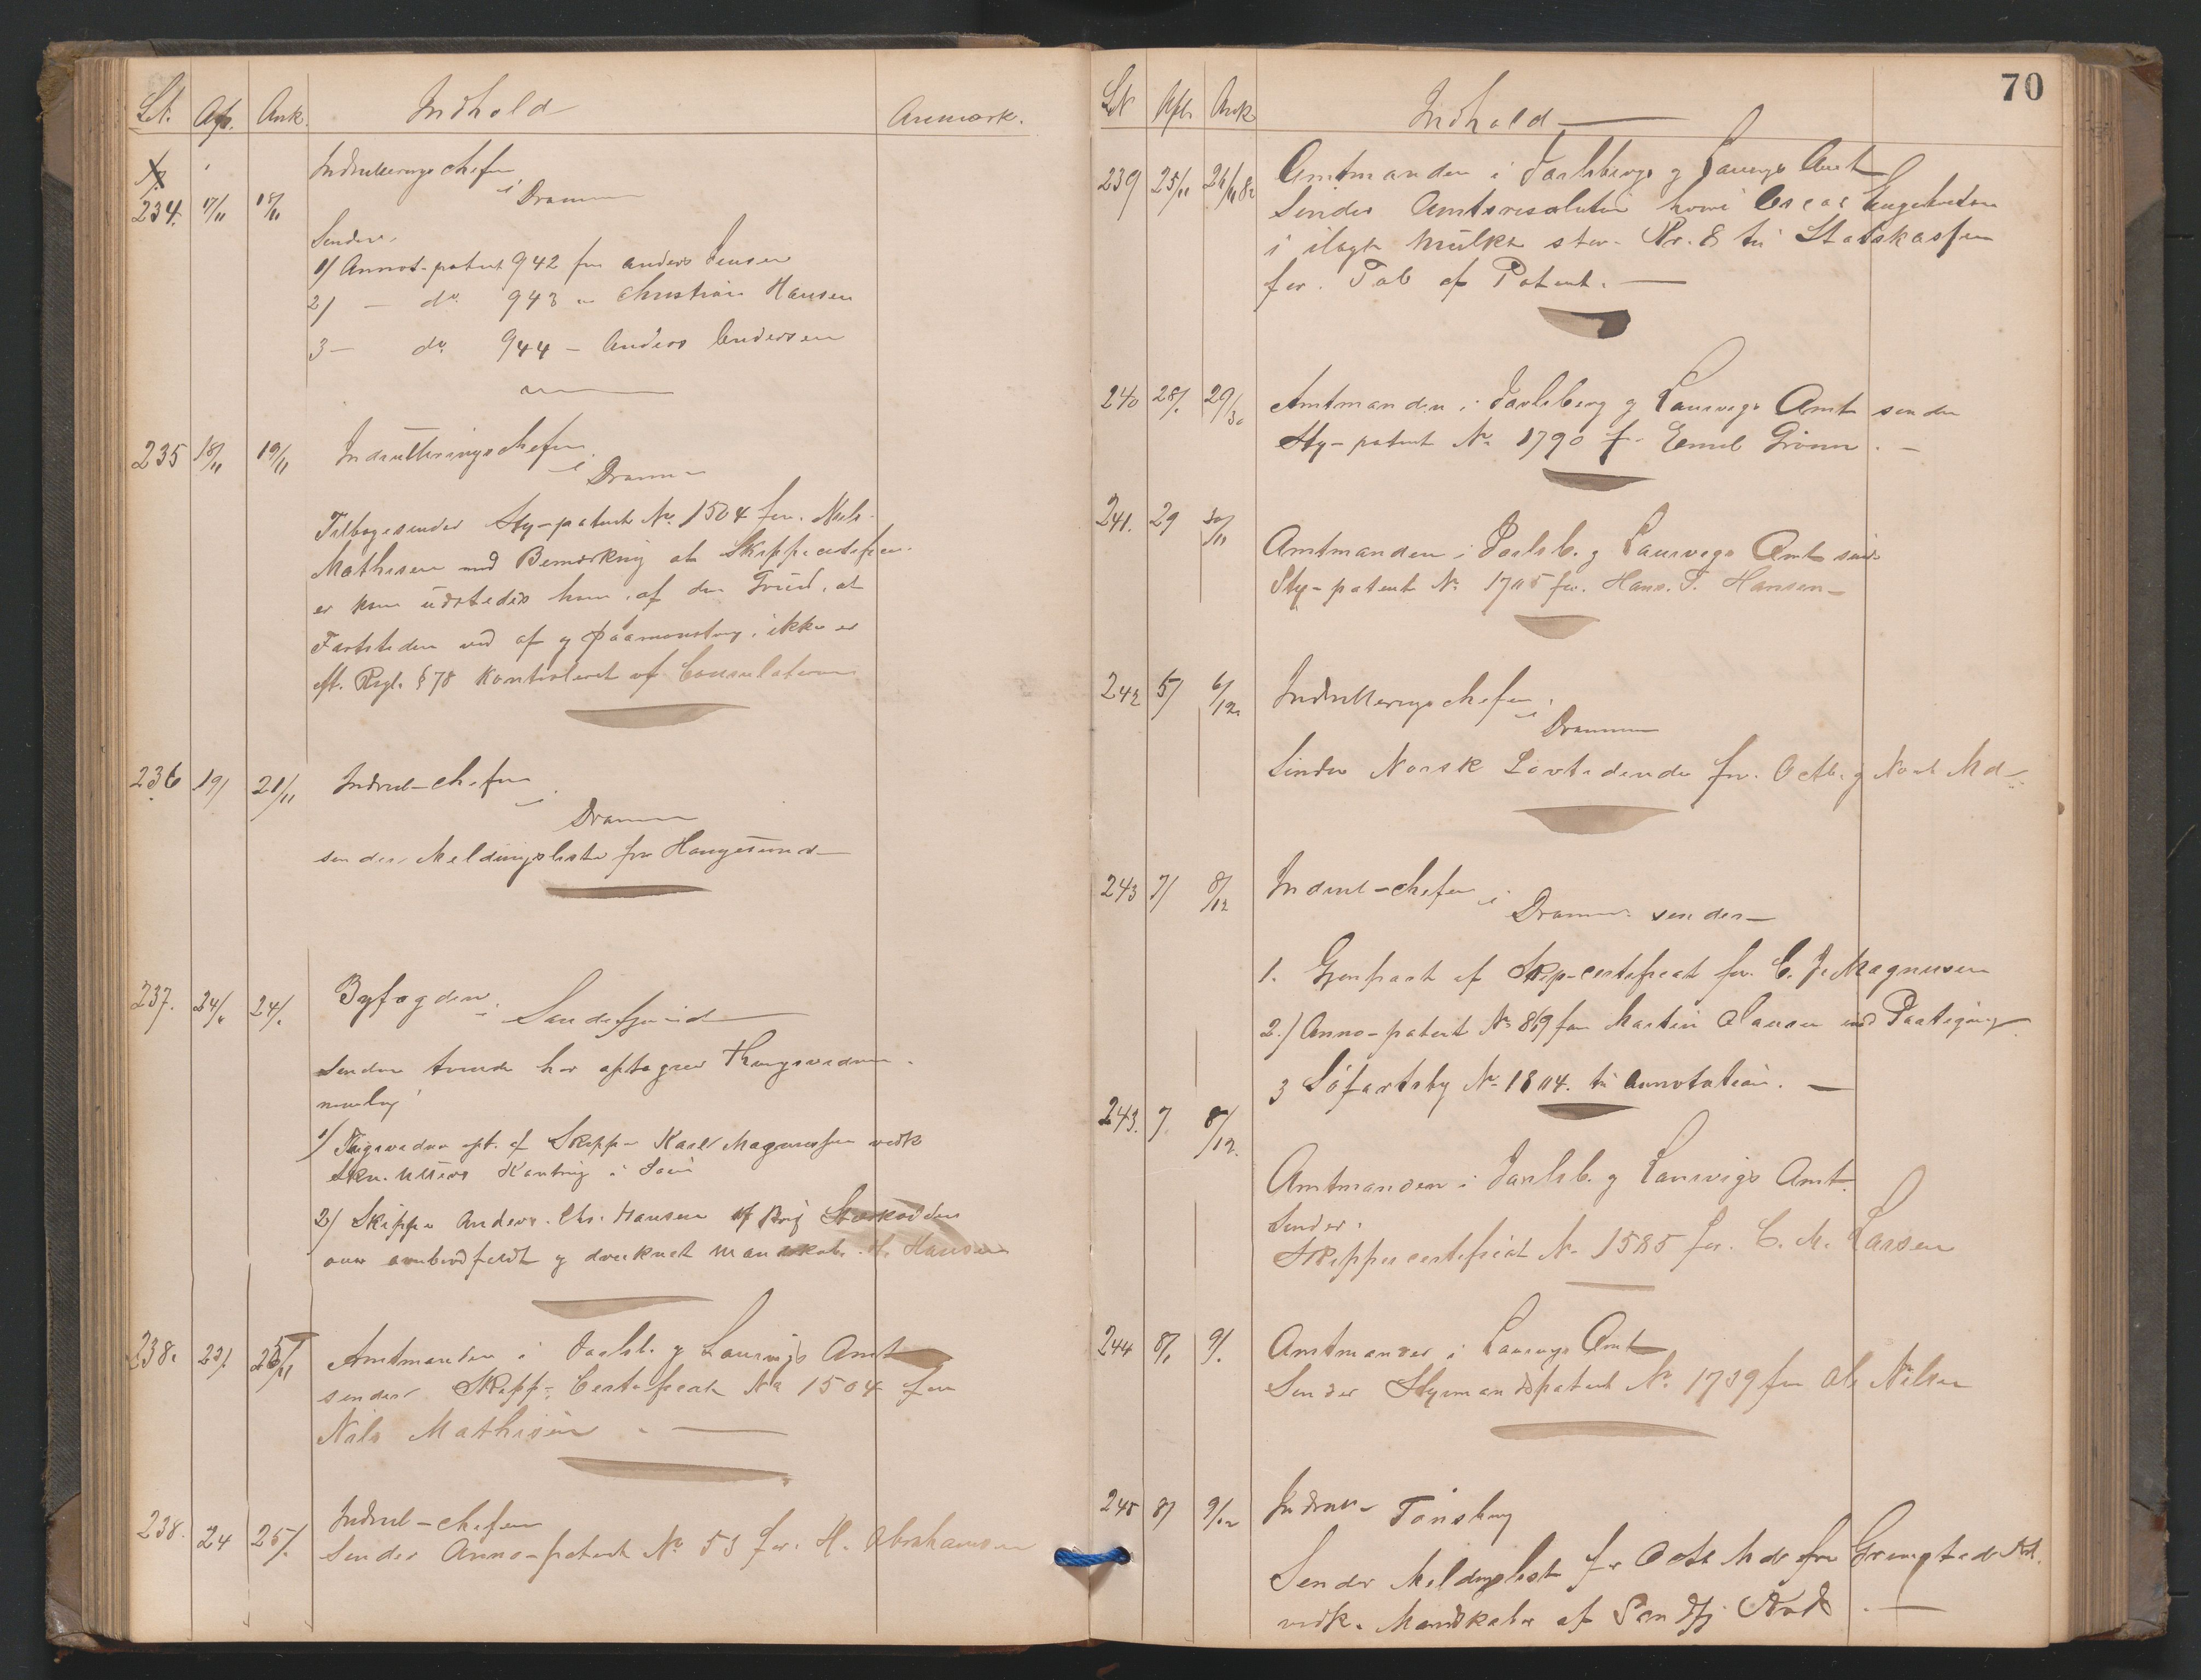 Lt. Afs. Ank. Indhold Anmærk.
234. 17/11 18/11 Indrulleringschefen
i Drammen
Sender.
1/ Annot-patent 942 for Anders Jensen
2/ — do. 943 " Christian Hansen
3 — do. 944 — Anders Andersen
235 18/11 19/11 Indrulleringschefen
i Drammen
Tilbagesender Sty-patent No. 1504 for Nils
Mathisen med Bemærkning at Skippercertifica
er kan udstedes ham, af den Grund, at
Fartstiden ved af og paamønstring, ikke er
eft. Regl. § 78 Kontroleret af Consulaterne
236 19/ 21/11 Indrul-chefen
i
Drammen
sender Meldingsliste for Haugesund
237. 24/11 24/. Byfogden
i Sandefjord
sender tvende her optagne Thingsvidner
nemlig
1/ Tingsvidne opt. af Skipper Karl Magnussen vedk
2/ Skipper Anders Chr. Hansen af Brig Stærkodder
over ombordfaldt og druknet Mandskab H. Hansen
238. 23/. 25/11 Amtmanden i Jarlsb. g Laurvigs Amt
sender Skipp- Certificat No 1504 for
Nils Mathisen. —
238. 24 25/. Indrul-chefen
Sender Anno-patent No 53 for H. Abrahamsen
70
LN Afs Ank Indhold —
239 25/11 26/11 82 Amtmanden i Jarlsbergs g Laurvigs Amt
Sender Amtsresolution hvori Oscar Engebretsen
i ilagt Mulkt stor Kr. 8 til Statskassen
for Tab af Patent. —
240 28/. 29/30 Amtmanden i Jarlsberg g Laurvigs Amt sender
Sty-patent No 1790 f. Emil Grönn. —
241. 29 30/11 Amtmanden i Jarlsb. g Laurvigs Amt sender
Sty-patent No 1705 for. Hans. T. Hansen —
242 5/ 6/12 Indrulleringschefen
i Drammen
Sender Norsk Lovtidende for Octb. g Novb Md
243 7/ 8/12 Indrul-chefen i
Drammen sender —
1. Gjenpart af Skip-certificat for C. J. Magnusen
2.) Anno-patent No 819 for Martin Hansen med Paategning
3 Söfartsby No 1804. til Annotation. —
243. 7 8/12. Amtmanden i Jarlsb. g Laurvigs Amt.
Sender.
Skippercertificat No 1585 for. C. M. Larsen
244 8/. 9/. Amtmanden i Laurvigs Amt
Sender Styrmandspatent No 1739 for Ole Nilsen
245 8/ 9/12 Indrul- Tönsberg
Sender Meldingslist for Octb Md fra Grimstad
vedk. Mandskaber af Sandfj